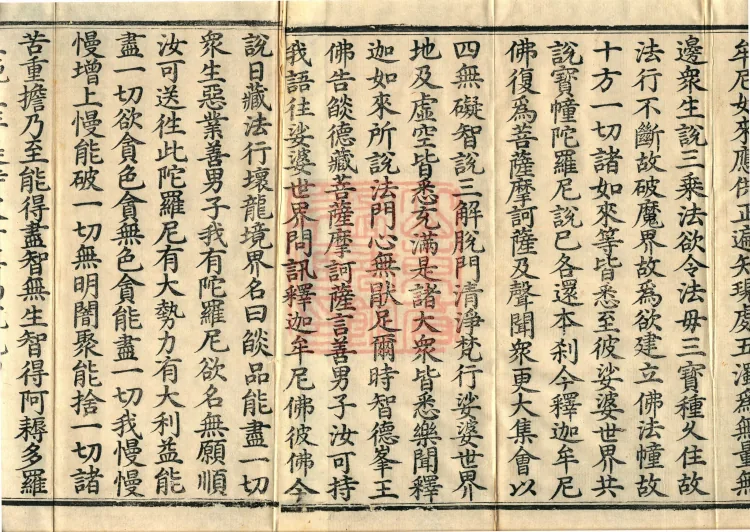 牟尼如來應供正遍知現處五濁爲無量無
邊衆生說三乘法欲令法母三寶種久住故
法行不斷故破魔界故爲欲建立佛法幢故
十方一切諸如來等皆悉至彼娑婆世界共
說寶幢陀羅尼說已各還本刹今釋迦牟尼
佛復爲菩薩摩訶薩及聲聞衆更大集會以
四無礙智說三解脫門清淨梵行娑婆世界
地及虛空皆悉充滿是諸大衆皆悉樂聞釋
迦如來所說法門心無猒足爾時智德峯王
佛告𦦨德藏菩薩摩訶薩言善男子汝可持
我語往娑婆世界問訊釋迦牟尼佛彼佛今
說日藏法行壞龍境界名曰𦦨品能盡一切
衆生惡業善男子我有陀羅尼欲名無願順
汝可送往此陀羅尼有大勢力有大利益能
盡一切欲貪色貪無色貪能盡一切我慢慢
慢增上慢能破一切無明闇聚能捨一切諸
苦重擔乃至能得盡智無生智得阿耨多羅